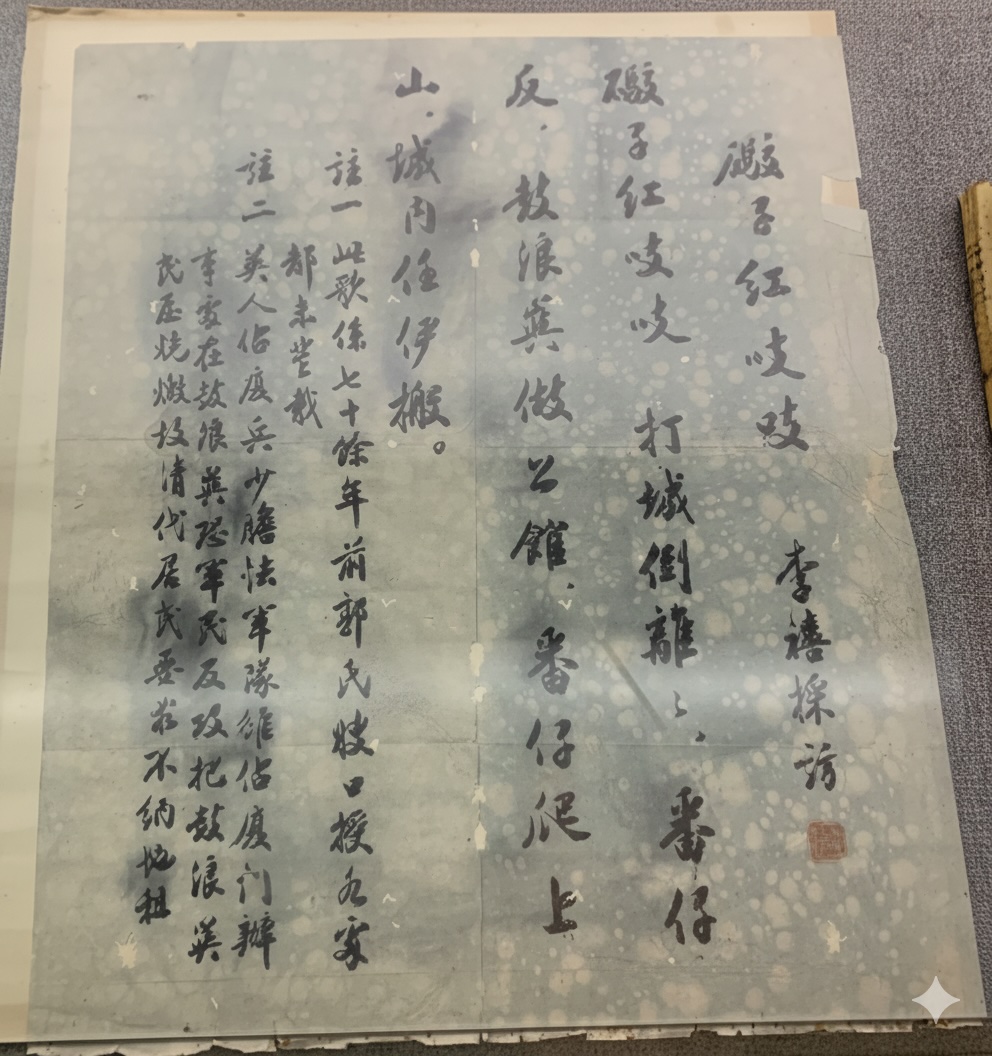 礮子紅吱吱
李禧採訪
礮子紅吱吱 打城倒離〻.番仔
反.鼓浪嶼做公館.番仔爬上
山.城內任伊搬。
註一 此歌係七十餘年前郭氏嫂口授各家
都未豋載
註二 英人佔廈兵少膽怯軍隊雖佔廈门辦
事處在鼓浪嶼恐軍民反攻把鼓浪嶼
民屋燒燬故清代居民要求不納地租